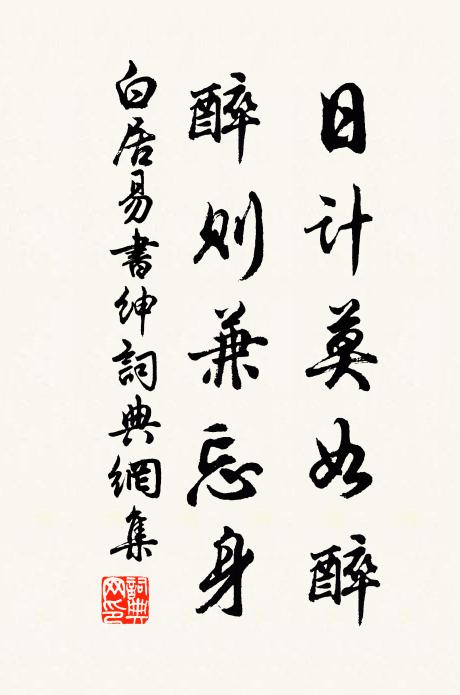 日计莫如醉
醉则兼忘身
白居易書紳詞典網集
詞典网印